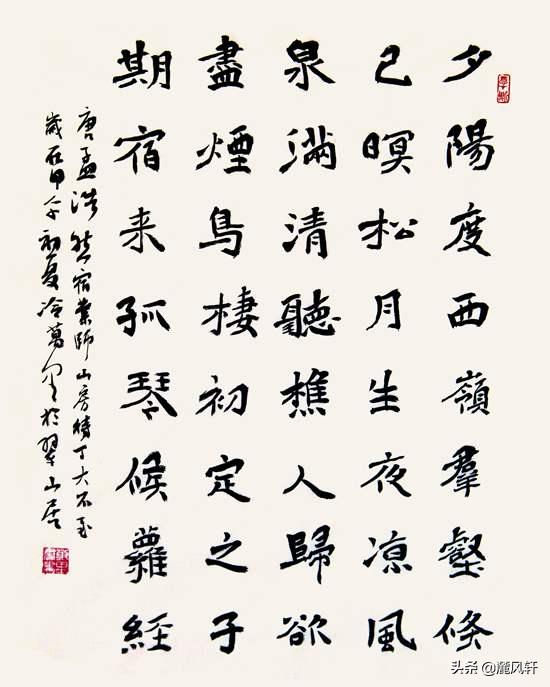 夕陽度西嶺羣壑倏
已暝松月生夜凉風
泉滿清聽樵人歸欲
盡煙鳥棲初定之子
期宿来孤琴候蘿經
唐孟浩然宿業師山房待丁大不至
歲在甲午初夏冷萬於翠山居
头条 @麓风轩